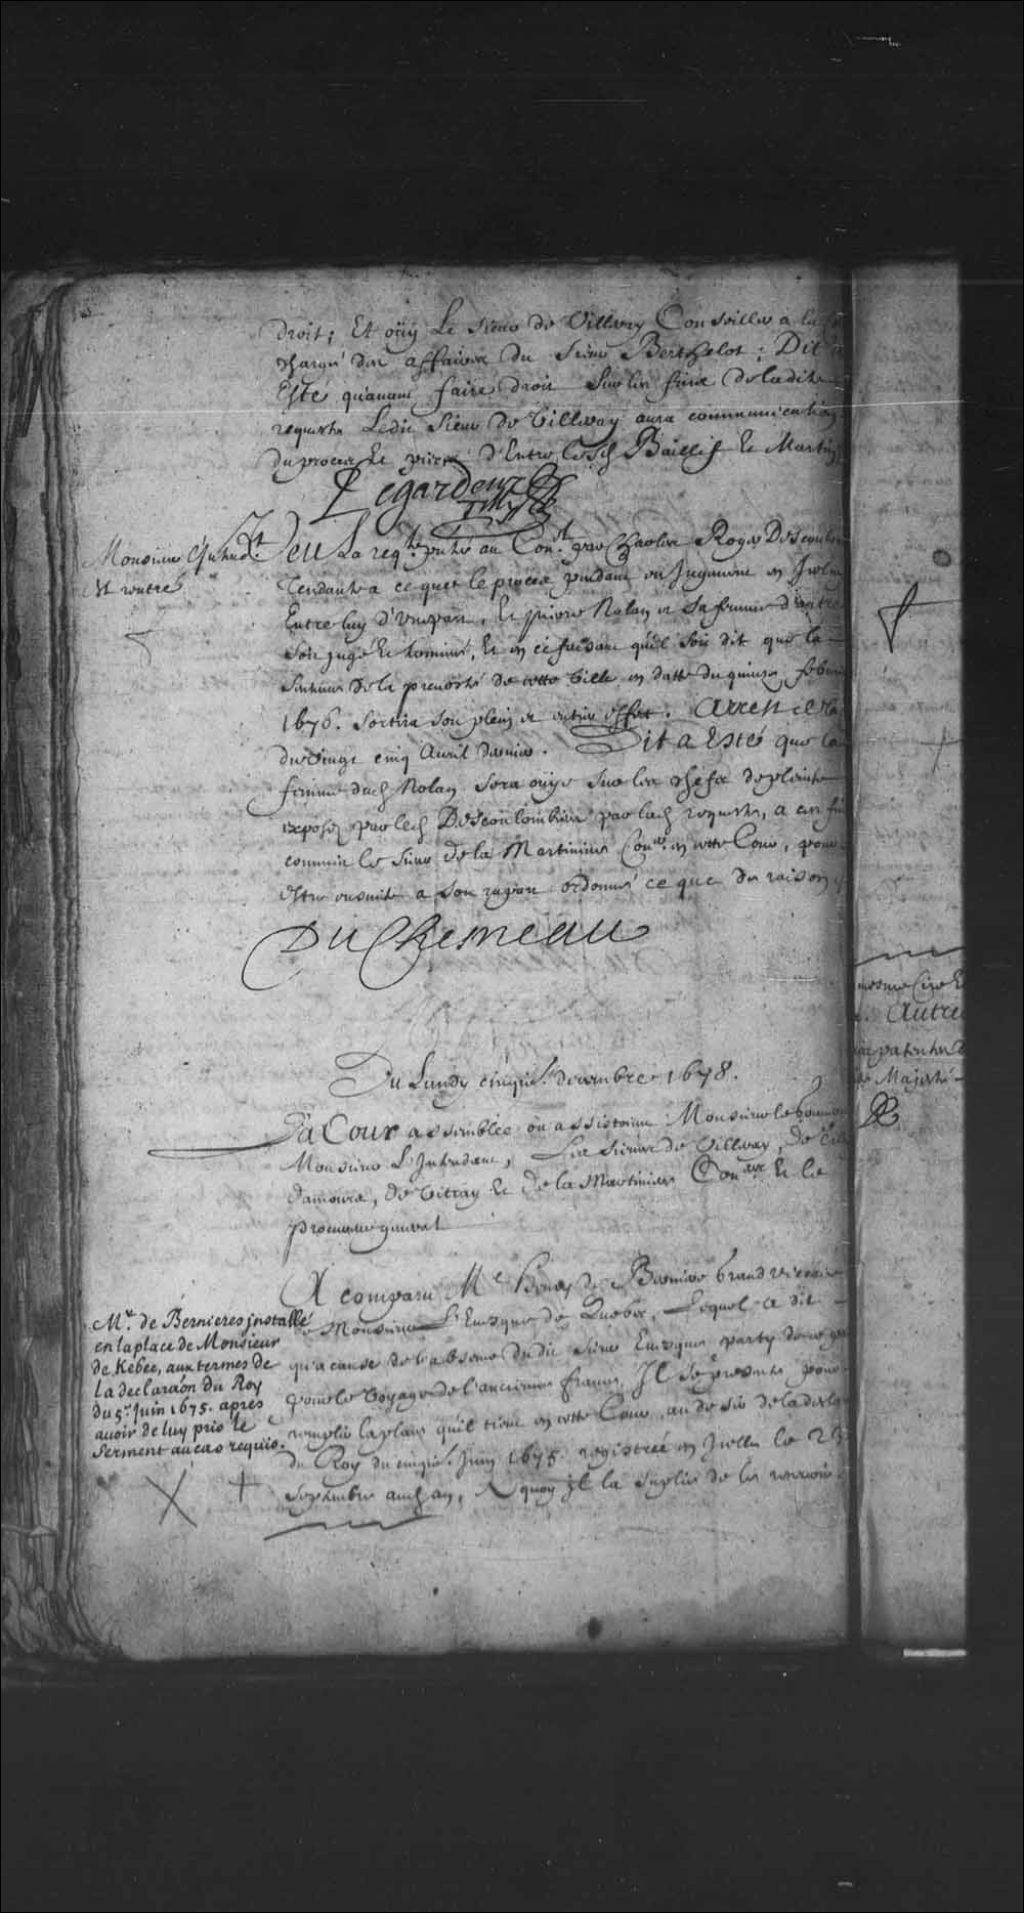 droit; Et oüy Le sieur de Villeray Conseiller a la
chargé des affaires du sieur Berthelot; Dit a
Esté qu'auant faire droit sur les fins de ladite
requeste Ledit sieur de Villeray aura communication
du proces et pieces d'Entre lesd. Baillif et Martin
Legardeur
Tilly
Monsieur l'Intend.t
est rentré
Veu La req.te pnteé au Con.el par Charles Roger Descoulom
Tendante a ce que le procez pendant en Jugement en Jcelu
Entre luy d'Vnepart, Et pierre Nolan et sa femme d'autre
soit jugé et terminé, Et en ce faisant qu'il soit dit que la
sentence de la preuosté de cette Ville en datte du quinze feburi
1676. sortira son plein et entier effet. Arrest
du Vingt cinq Auril dernier. Dit a Esté que la
femme dud. Nolan sera ouye sur les chefs de plainte
exposez par led. Descoulombiers par lad. requeste, a ces fin
commis le sieur de la Martiniere Con.er en cette Cour, pour
estre ensuite a son raport ordonné ce que de raison
DuChesneau
Du Lundy cinqui.e decembre 1678.
La Cour assemblée où assistoient Monsieur le Gouuern
Monsieur L'Intendant, Les sieurs de Villeray, de Till
damours, de Vitray et de la Martiniere Con.ers Et le
procureur general
M.r de Bernieres jnstallé
en la place de Monsieur
de Kebec, aux termes de
la declaraõn du Roy
du 5.e Juin 1675. apres
auoir de luy pris le
Serment au cas requis.
A comparu M.e Henry de Bernieres Grand vicaire
de Monsieur L'Euesque de Quebec, Lequel a dit
qu'a cause de l'absence dudit sieur Euesque party de ce
pour le Voyage de l'ancienne france, Il se presente pour
remplir la place qu'il tient en cette Cour, au desir de la decla
du Roy du cinqui.e Juin 1675. registreé en Jcelle le 23
septembre aud. an, A quoy Jl la suplie de le receuoir.
mesme
Autre
patentes
Majesté